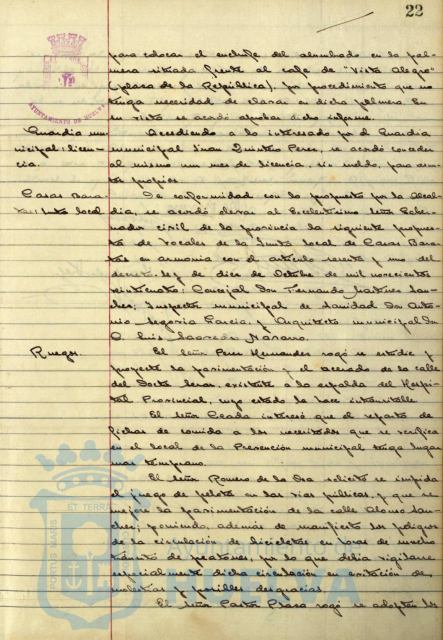 22
para colocar el enchufe del alumbrado en la pal-
mera situada frente al café de "Vista Alegre"
(plaza de la República), por procedimiento que no
tenga necesidad de clavar en dicha palmera. En
su vista se acordó aprobar dicho informe.
AYUNTAMIENTO DE HUELVA
Guardia mu-
nicipal: licen-
cia.
Accediendo a lo interesado por el Guardia
municipal Juan Quintero Perez, se acordó conceder
al mismo un mes de licencia, sin sueldo, para asun-
tos propios.
Casas Bara-
tas: Junta local
De conformidad con lo propuesto por la Alcal-
dia, se acordó elevar al Excelentísimo Señor Gober-
nador civil de la provincia la siguiente propues-
ta de Vocales de la Junta local de Casas Bara-
tas en armonia con el artículo sesenta y uno del
decreto-ley de diez de Octubre de mil novecientos
veinticuatro: Concejal Don Fernando Martinez San-
chez; Inspector municipal de Sanidad Don Anto-
nio Segovia Garcia, y Arquitecto municipal Don
Luis Saavedra Navarro.
Ruegos.
El Señor Perez Hernandez rogó se estudie y
proyecte la pavimentación y el acerado de la calle
del Doctor existente a la espalda del Hospi-
tal Provincial, cuyo estado la hace intransitable.
El Señor interesó que el reparto de
fichas de comida a los necesitados que se verifica
en el local de la Prevención municipal tenga lugar
mas temprano.
El Señor Romero de la Osa solicitó se impida
el juego de pelota en las vias públicas, y que se
mejore la pavimentación de la calle Alonso San-
chez; poniendo, además de manifiesto los peligros
de la circulación de bicicletas en horas de mucho
tránsito de peatones, por lo que debia vigilarse
especialmente dicha circulación en evitación de
molestias y posibles desgracias.
El Señor Pastor rogó se adopten los
PORTUS MARIS ET TERRAE
HUELVA